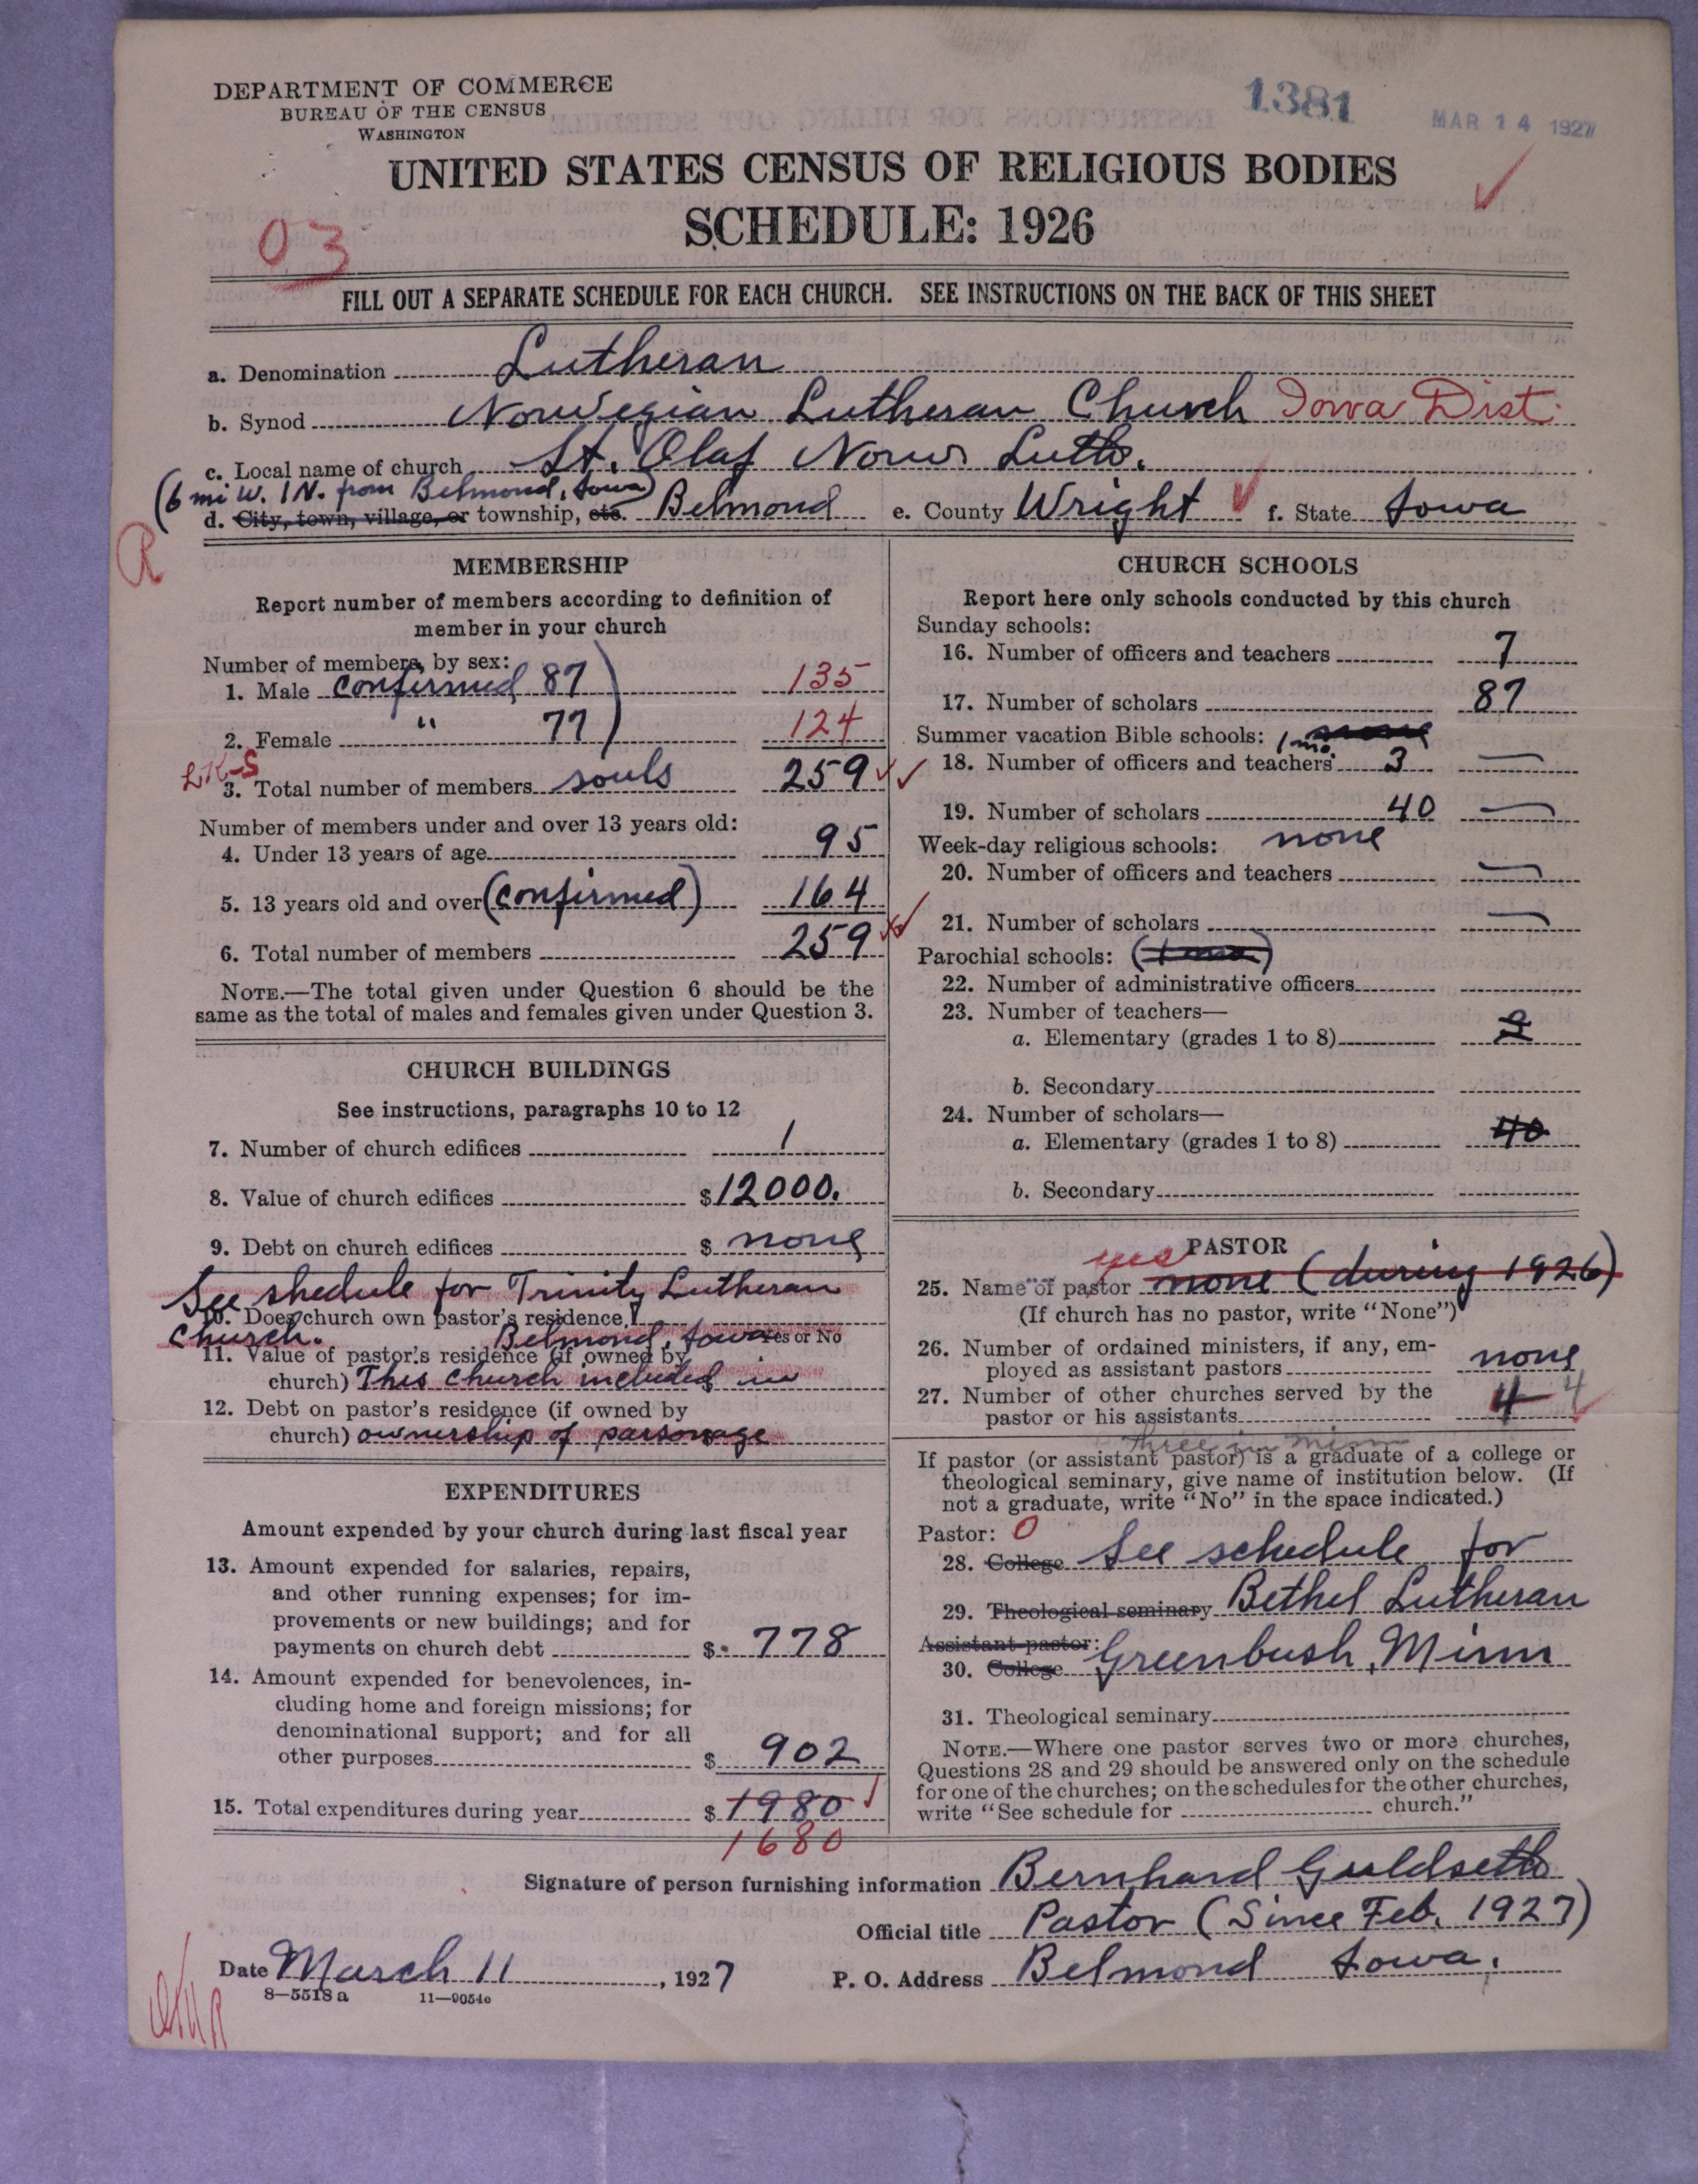 DEPARTMENT OF COMMERCE
BUREAU OF THE CENSUS
WASHINGTON
1381
MAR 14 1927
UNITED STATES CENSUS OF RELIGIOUS BODIES
SCHEDULE: 1926
03
FILL OUT A SEPARATE SCHEDULE FOR EACH CHURCH. SEE INSTRUCTIONS ON THE BACK OF THIS SHEET
a. Denomination Lutheran
b. Synod Norwegian Lutheran Church Iowa Dist.
c. Local name of church St. Olaf Norw Luth.
(6 mi W. 1 N. from Belmond, Iowa)
d. City, town, village, or township, etc. Belmond e. County Wright f. State Iowa
R
MEMBERSHIP
Report number of members according to definition of
member in your church
Number of members, by sex:
1. Male confirmed 87 135
2. Female " 77 124
3. Total number of members souls 259
Number of members under and over 13 years old:
4. Under 13 years of age 95
5. 13 years old and over (confirmed) 164
6. Total number of members 259
NOTE.—The total given under Question 6 should be the
same as the total of males and females given under Question 3.
CHURCH BUILDINGS
See instructions, paragraphs 10 to 12
7. Number of church edifices 1
8. Value of church edifices $12000.
9. Debt on church edifices $ none
See shedule for Trinity Lutheran
10. Does church own pastor's residence?
Church. Belmond, Iowa Yes or No
11. Value of pastor's residence (if owned by
church) This church included in $
12. Debt on pastor's residence (if owned by
church) ownership of parsonage
EXPENDITURES
Amount expended by your church during last fiscal year
13. Amount expended for salaries, repairs,
and other running expenses; for im-
provements or new buildings; and for
payments on church debt $ 778
14. Amount expended for benevolences, in-
cluding home and foreign missions; for
denominational support; and for all
other purposes $ 902
15. Total expenditures during year $ 1980
1680
CHURCH SCHOOLS
Report here only schools conducted by this church
Sunday schools:
16. Number of officers and teachers 7
17. Number of scholars 87
Summer vacation Bible schools: 1 mo. none
18. Number of officers and teachers 3 —
19. Number of scholars 40 —
Week-day religious schools: none
20. Number of officers and teachers —
21. Number of scholars —
Parochial schools: (1 mo.)
22. Number of administrative officers
23. Number of teachers—
a. Elementary (grades 1 to 8)
b. Secondary
24. Number of scholars—
a. Elementary (grades 1 to 8) 40
b. Secondary
PASTOR
yes
25. Name of pastor none (during 1926)
(If church has no pastor, write "None")
26. Number of ordained ministers, if any, em-
ployed as assistant pastors none
27. Number of other churches served by the
pastor or his assistants 4 4
three in Minn
If pastor (or assistant pastor) is a graduate of a college or
theological seminary, give name of institution below. (If
not a graduate, write "No" in the space indicated.)
Pastor: 0
28. College See schedule for
29. Theological seminary Bethel Lutheran
Assistant pastor:
30. College Greenbush, Minn
31. Theological seminary
NOTE.—Where one pastor serves two or more churches,
Questions 28 and 29 should be answered only on the schedule
for one of the churches; on the schedules for the other churches,
write "See schedule for church."
Signature of person furnishing information Bernhard Guldseth
Official title Pastor (Since Feb. 1927)
Date March 11, 1927
P. O. Address Belmond Iowa.
8—5518a 11—9054c